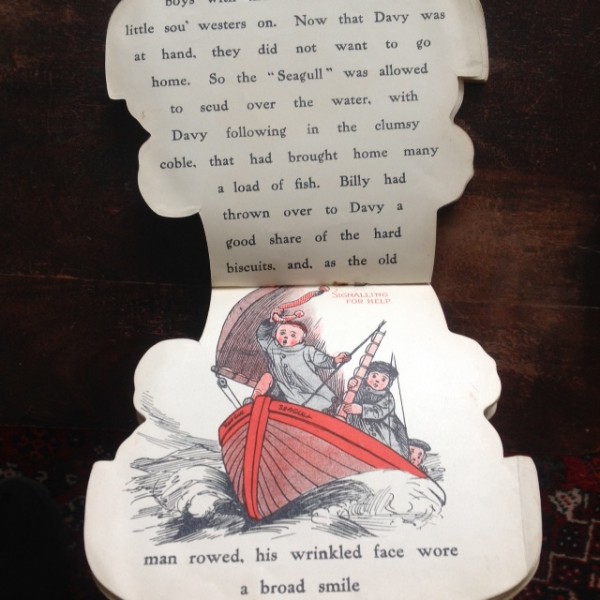 boys
little sou' westers on. Now that Davy was
at hand, they did not want to go
home. So the "Seagull" was allowed
to scud over the water, with
Davy following in the clumsy
coble, that had brought home many
a load of fish. Billy had
thrown over to Davy a
good share of the hard
biscuits, and, as the old
SIGNALLING
FOR HELP
SEAGULL
man rowed, his wrinkled face wore
a broad smile